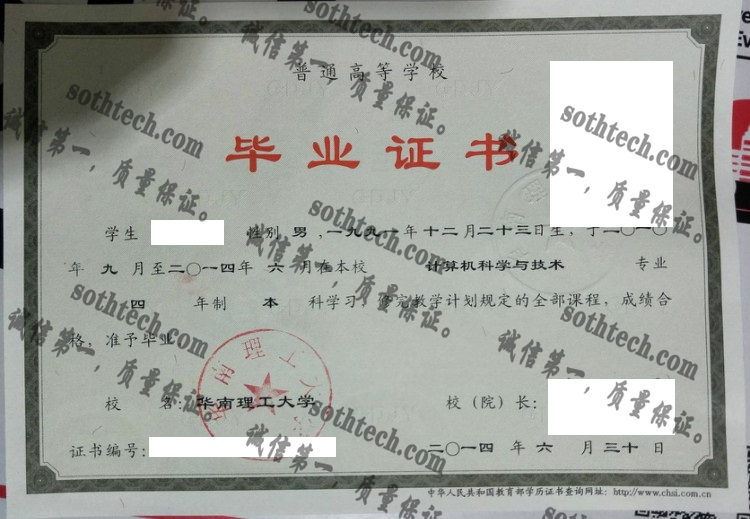 普通高等学校
毕业证书
学生 性别 男 ,一九九一年 十二月 二十三日生，于二〇一〇
年 九 月至二〇一四年 六 月在本校 计算机科学与技术 专业
四 年制 本 科学习，修完教学计划规定的全部课程，成绩合
格，准予毕业
校 名：华南理工大学 校（院）长：
证书编号： 二〇一四 年 六 月 三十 日
中华人民共和国教育部学历证书查询网址：http://www.chsi.com.cn
sothtech.com
诚信第一，质量保证。
sothtech.com
诚信第一，质量保证。
sothtech.com
诚信第一，质量保证。
sothtech.com
诚信第一，质量保证。
sothtech.com
诚信第一，质量保证。
sothtech.com
诚信第一，质量保证。
sothtech.com
诚信第一，质量保证。
sothtech.com
诚信第一，质量保证。